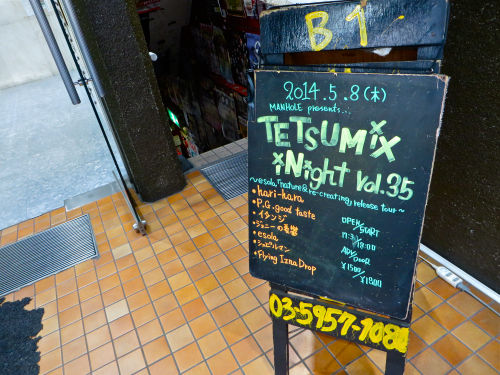 B1
2014.5.8(木)
MANHOLE presents...
TETSUMIX
iNight vol.35
~esola "nature & re-creating" release tour~
• hari-hara
• P.G. good taste
• イタンジ
• ジョニーの
• esola
• Flying Izna Drop
OPEN/START
17:31/18:00
ADV/DOOR
¥1500/¥1800
03-5957-108